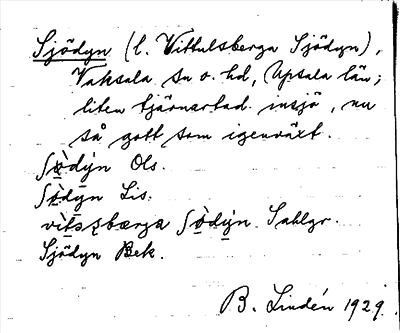 Sjödyn (l. Vittulsberga Sjödyn),
Vaksala sn o. hd, Upsala län;
liten tjärnartad insjö, nu
så gott som igenväxt.
Ols.
Lis.
Sahlgr.
Sjödyn Bek.
B. Lindén 1929.